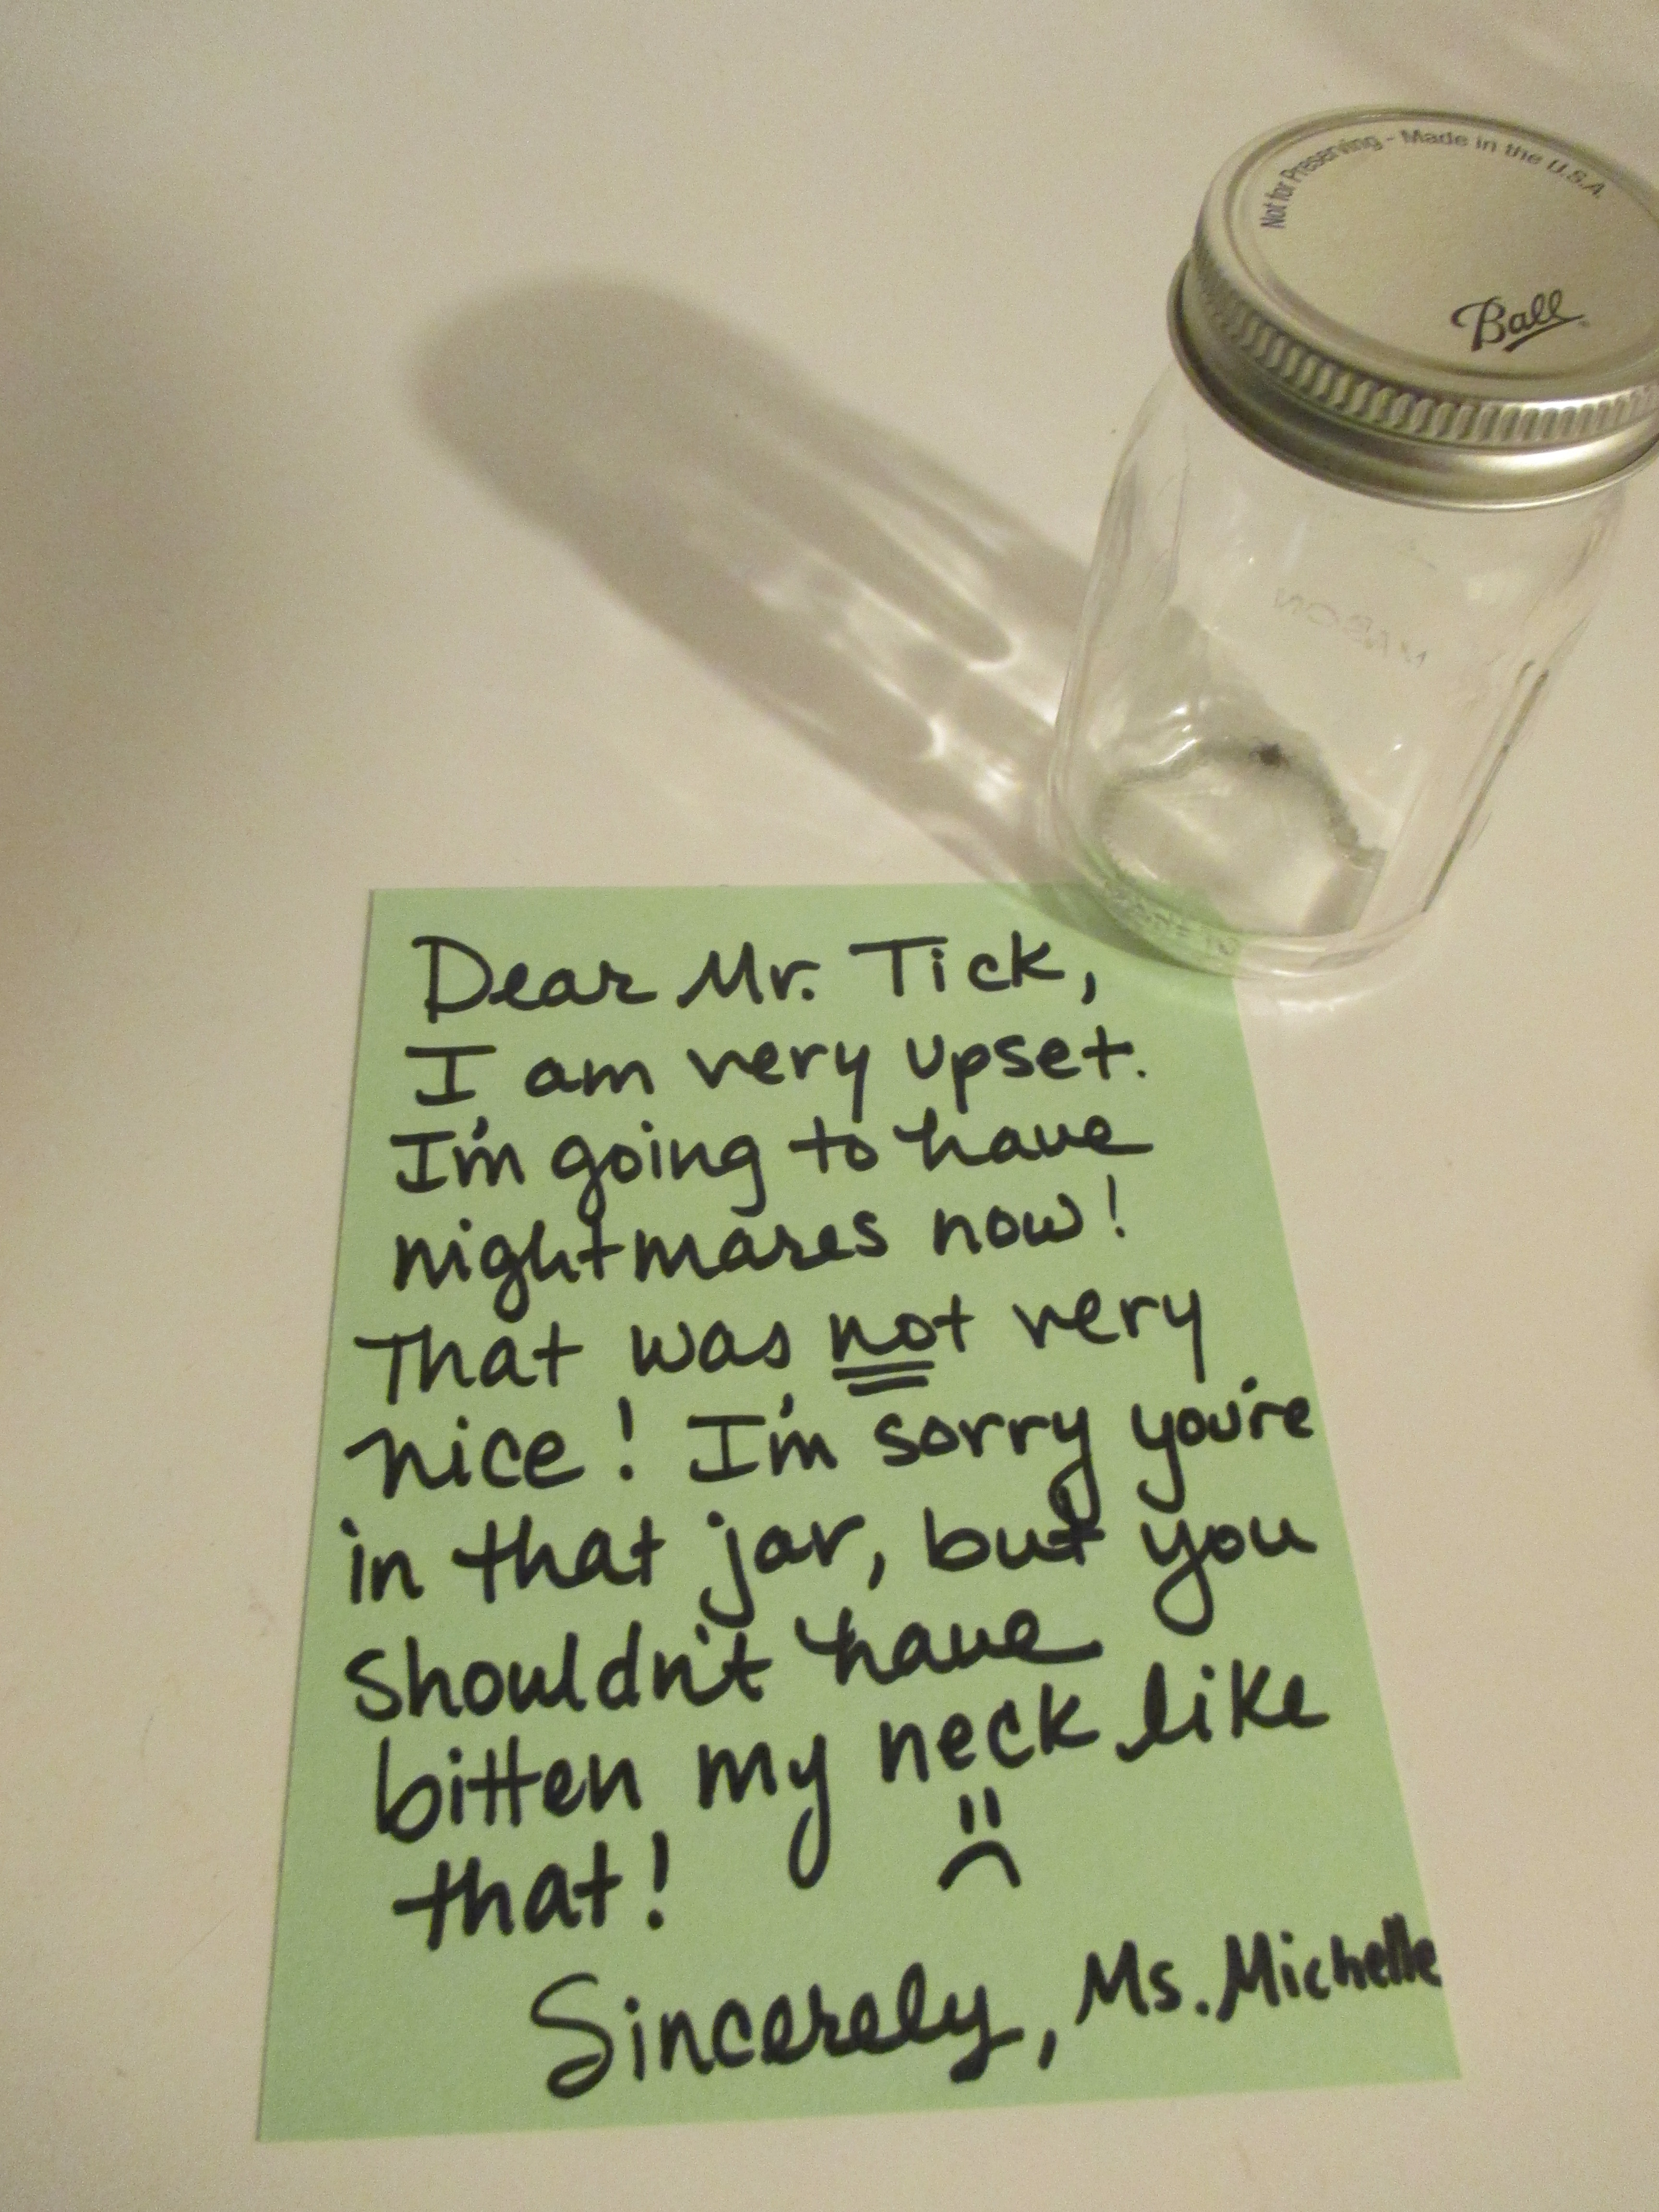 Not for Preserving - Made in the U.S.A.
Ball
MASON
MADE IN
Dear Mr. Tick,
I am very upset.
I'm going to have
nightmares now!
That was not very
nice! I'm sorry you're
in that jar, but you
shouldn't have
bitten my neck like
that!
Sincerely, Ms. Michelle